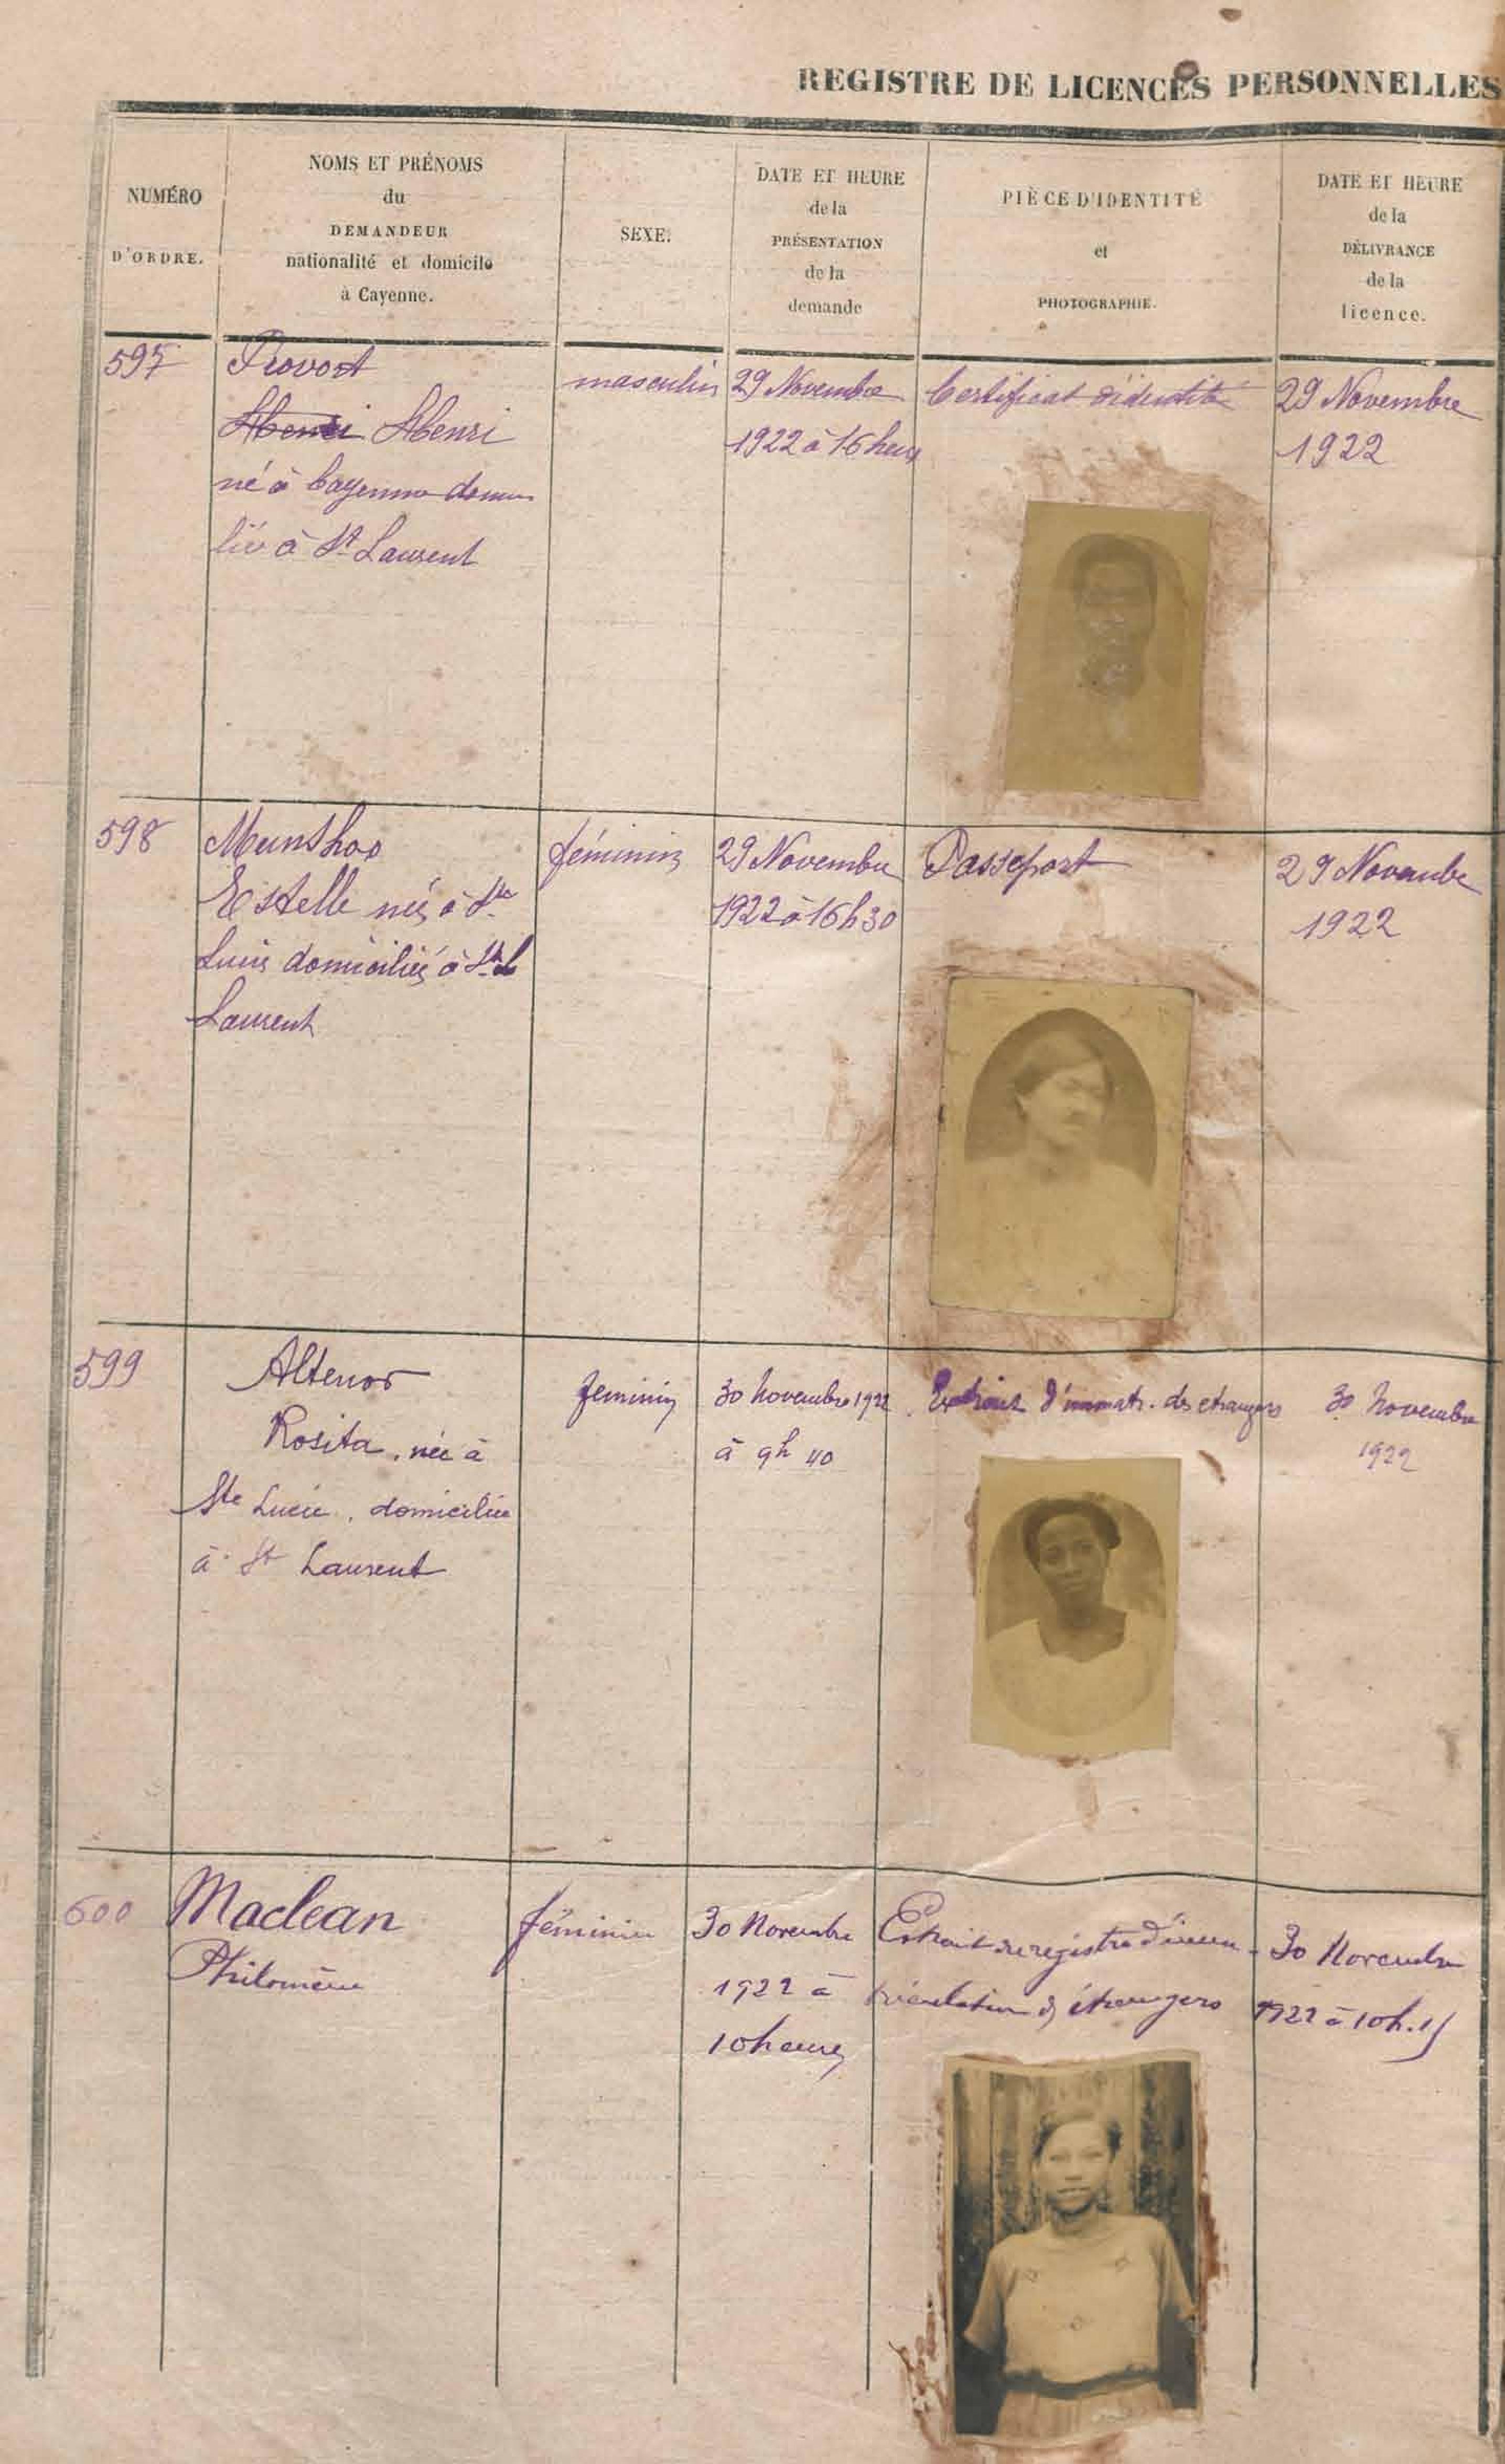 REGISTRE DE LICENCES PERSONNELLES
NUMÉRO
D'ORDRE.
NOMS ET PRÉNOMS
du
DEMANDEUR
nationalité et domicile
à Cayenne.
SEXE.
DATE ET HEURE
de la
PRÉSENTATION
de la
demande
PIÈCE D'IDENTITÉ
et
PHOTOGRAPHIE.
DATE ET HEURE
de la
DÉLIVRANCE
de la
licence.
597
Provost
Henri Henri
né à Cayenne domi
lié à St Laurent
masculin
29 Novembre
1922 à 16 heures
Certificat d'identité
29 Novembre
1922
598
Estelle née à Ste
Lucie domiciliée à St
Laurent
féminin
29 Novembre
1922 à 16h30
Passeport
29 Novembre
1922
599
Altenor
Rosita, née à
Ste Lucie, domiciliée
à St Laurent
feminin
30 novembre 1922
à 9h 40
Extrait d'immatr. des etrangers
30 Novembre
1922
600
Maclean
Philomène
féminin
30 Novembre
1922 à
10 heures
Extrait du registre d'imma-
triculation des étrangers
30 Novembre
1922 à 10h.15